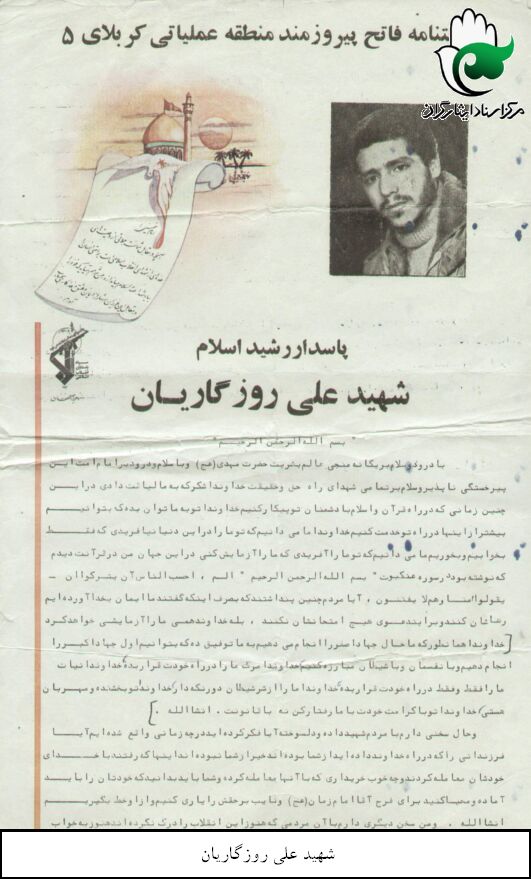 تنامه فاتح پیروزمند منطقه عملیاتی کربلای ۵
مرکز اسناد ایثارگران
پاسدار رشید اسلام
شهید علی روزگاریان
" بسم الله الرحمن الرحیم "
با درود و سلام بر یگانه منجی عالم بشریت حضرت مهدی (عج) و با سلام و درود بر امام امت این
پیر خستگی ناپذیر و سلام بر تمامی شهدای راه حق و حقیقت خداوندا شکر که به ما لیاقت دادی در این
چنین زمانی که در راه قرآن و اسلام با دشمنان تو پیکار کنیم خداوندا تو به ما توان بده که بتوانیم
بیشتر از اینها در راه تو خدمت کنیم خداوندا ما می دانیم که تو ما را در این دنیا نیافریدی که فقط
بخوابیم و بخوریم ما می دانیم که تو ما را آفریدی که ما را آزمایش کنی در این جهان من در قرآنت دیدم
که نوشته بود در سوره عنکبوت " بسم الله الرحمن الرحیم " الم ، احسب الناس آن یترکوا ان -
یقولوا امنا و هم لا یفتنون . آیا مردم چنین پنداشتند که بصرف اینکه گفتند ما ایمان بخدا آورده ایم
رهاشان کنند و بر این دعوی هیچ امتحانشان نکنند . بله خداوند همی ما را آزمایشی خواهد کرد
خداوندا همانطور که ما حال جهاد اصغر را انجام می دهیم به ما توفیق ده که بتوانیم اول جهاد اکبر را
انجام دهیم و با نفسمان و با شیطان مبارزه کنیم خداوندا مرگ ما را در راه خودت قرار بده خداوندا نیات
ما را فقط و فقط در راه خودت قرار بده خداوندا ما را از شر شیطان دور نگه دار خداوندا تو بخشنده و مهربان
هستی خداوندا تو با کرامت خودت با ما رفتار کن نه با قانونت . انشاالله .
و حال سخنی دارم با مردم شهید داده و دلسوخته آیا فکر کرده اید در چه زمانی واقع شده ایم آیا
فرزندانی را که در راه خدا وند داده اید از شما بوده اند خیر از شما نبوده اند اینها که رفتند با خدای
خودشان معامله کردند و چه خوب خریداری که با آنها معامله کرده و شما باید بدانید که خودتان را باید
آماده و مهیا کنید برای فرج آقا امام زمان (عج) و نایب بر حقش را یاری کنیم و از او خط بگیریم
انشاالله . و من سخن دیگری دارم با آن مردمی که هنوز این انقلاب را درک نکرده اند هنوز به خواب
شهید علی روزگاریان